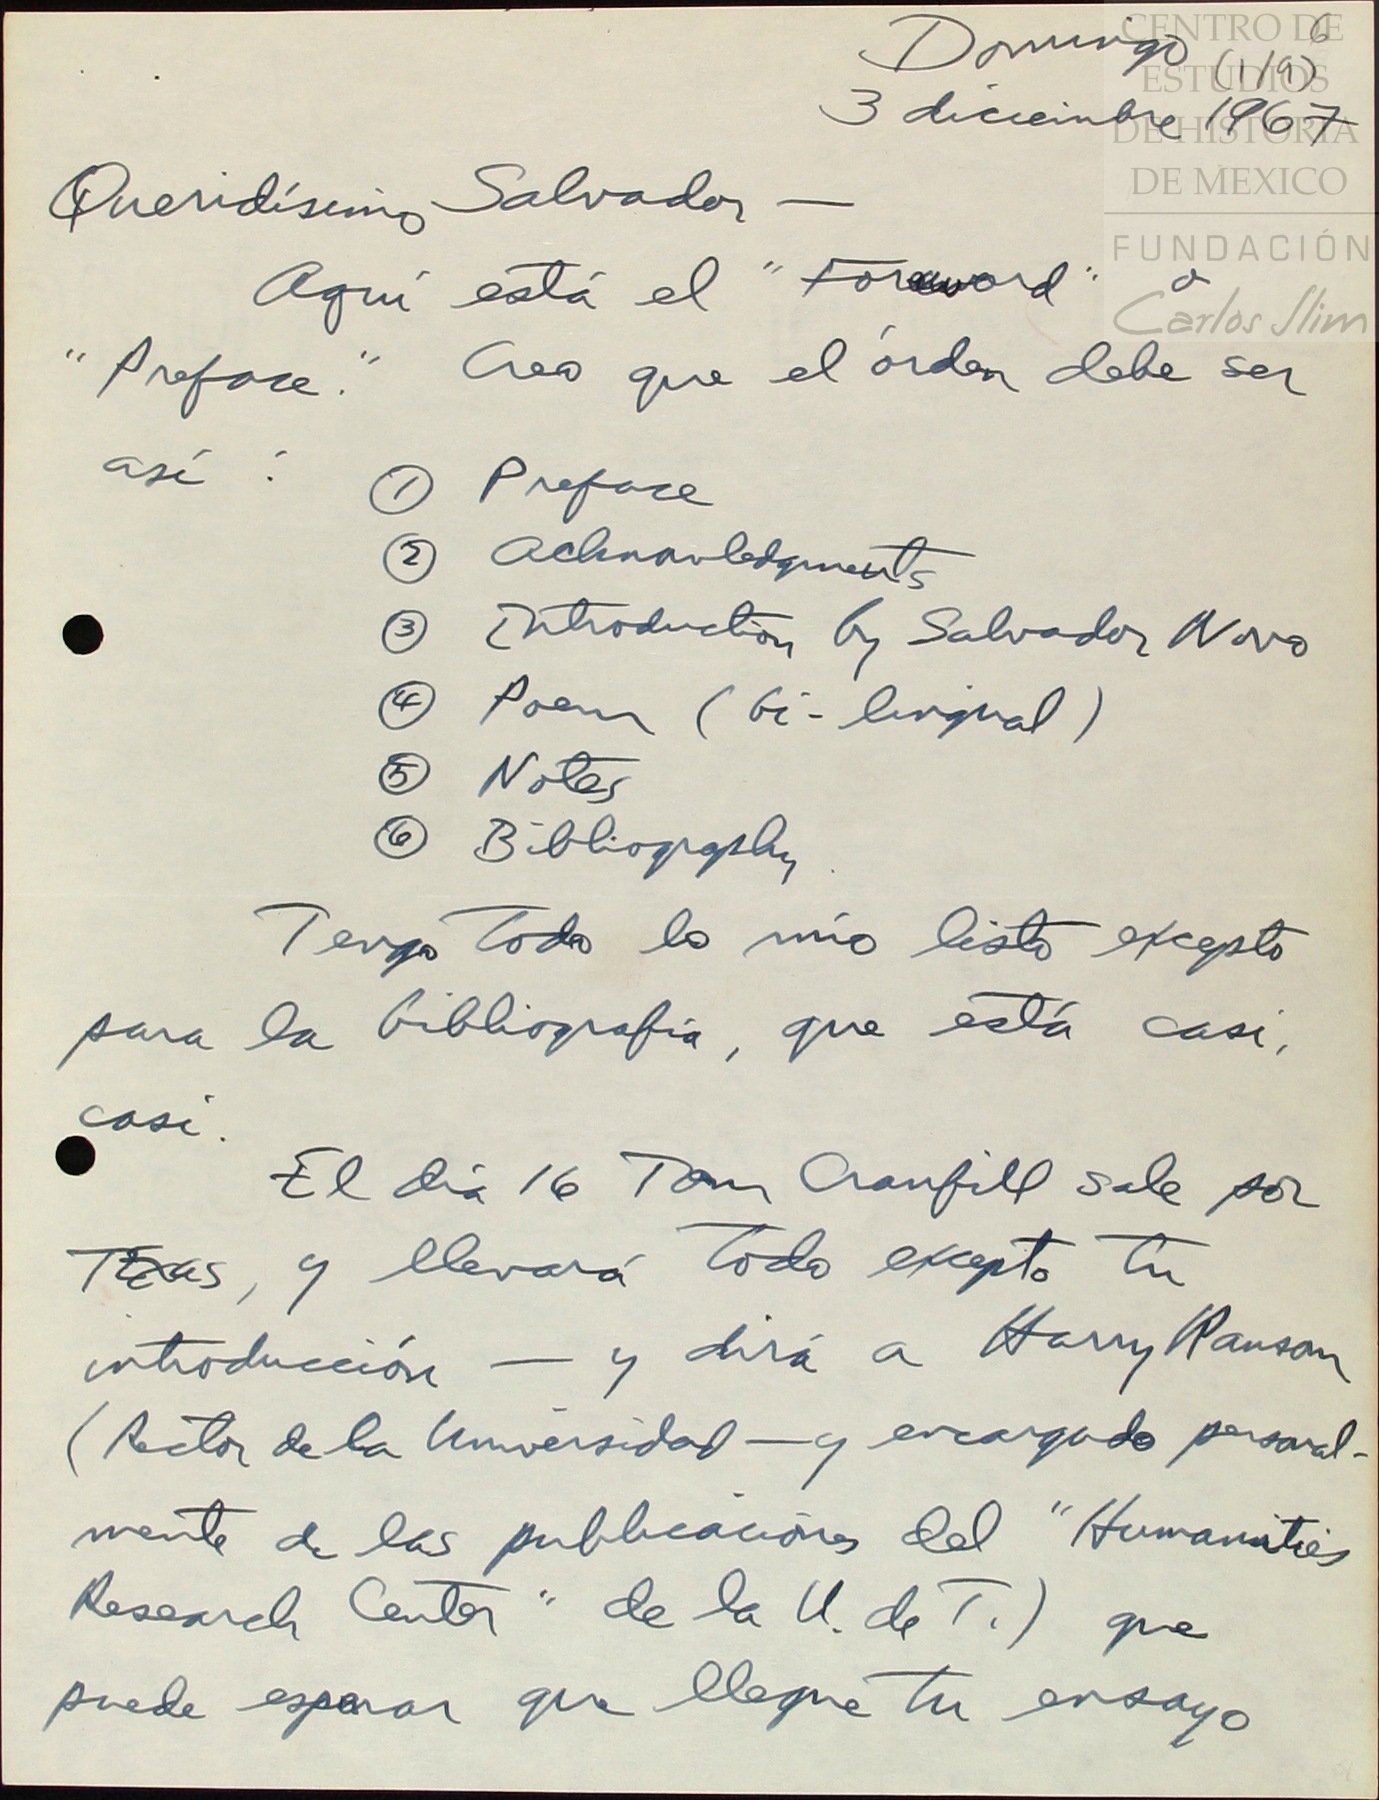 Domingo 6
(1/9)
3 diciembre 1967
CENTRO DE
ESTUDIOS
DE HISTORIA
DE MEXICO
FUNDACIÓN
Carlos Slim
Queridísimo Salvador —
Aquí está el "Foreword" o
"Preface." Creo que el órden debe ser
así :
① Preface
② Acknowledgments
③ Introduction by Salvador Novo
④ Poem (bi-lingual)
⑤ Notes
⑥ Bibliography
Tengo todo lo mío listo excepto
para la bibliografía, que está casi,
casi.
El día 16 Tom Cranfill sale por
Texas, y llevará todo excepto tu
introducción — y dirá a Harry Ransom
(Rector de la Universidad — y encargado personal-
mente de las publicaciones del "Humanities
Research Center" de la U. de T.) que
puede esperar que llegue tu ensayo